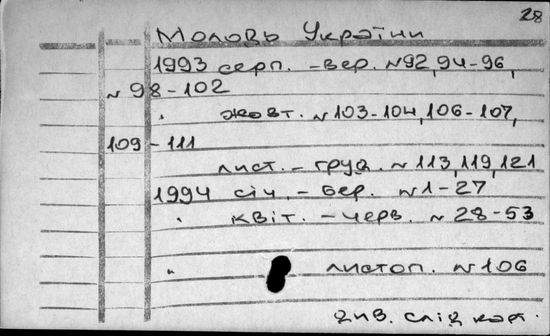 28
Молодь України
1993 серп. - вер. №92, 94-96,
№98-102
" жовт. №103-104, 106-107,
109-111
лист. - груд. №113, 119, 121
1994 січ. - бер. №1-27
" квіт. - черв. №28-53
" листоп. №106
див. слід карт.